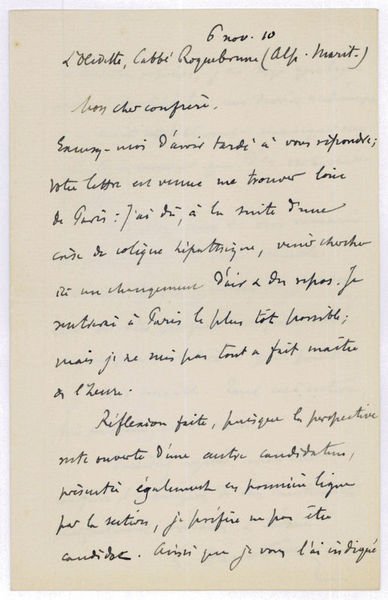 6 nov. 10
L'Olivette, Cabbé Roquebrune (Alp. Marit.)
Mon cher confrère.
Excusez-moi d'avoir tardé à vous répondre;
votre lettre est venue me trouver loin
de Paris : j'ai dû, à la suite d'une
crise de colique hépatique, venir chercher
ici un changement d'air & du repos. Je
rentrerai à Paris le plus tôt possible;
mais je ne suis pas tout à fait maître
de l'heure.
Réflexion faite, puisque la perspective
reste ouverte d'une autre candidature,
présentée également en première ligne
par la section, je préfère ne pas être
candidat. Ainsi que je vous l'ai indiqué